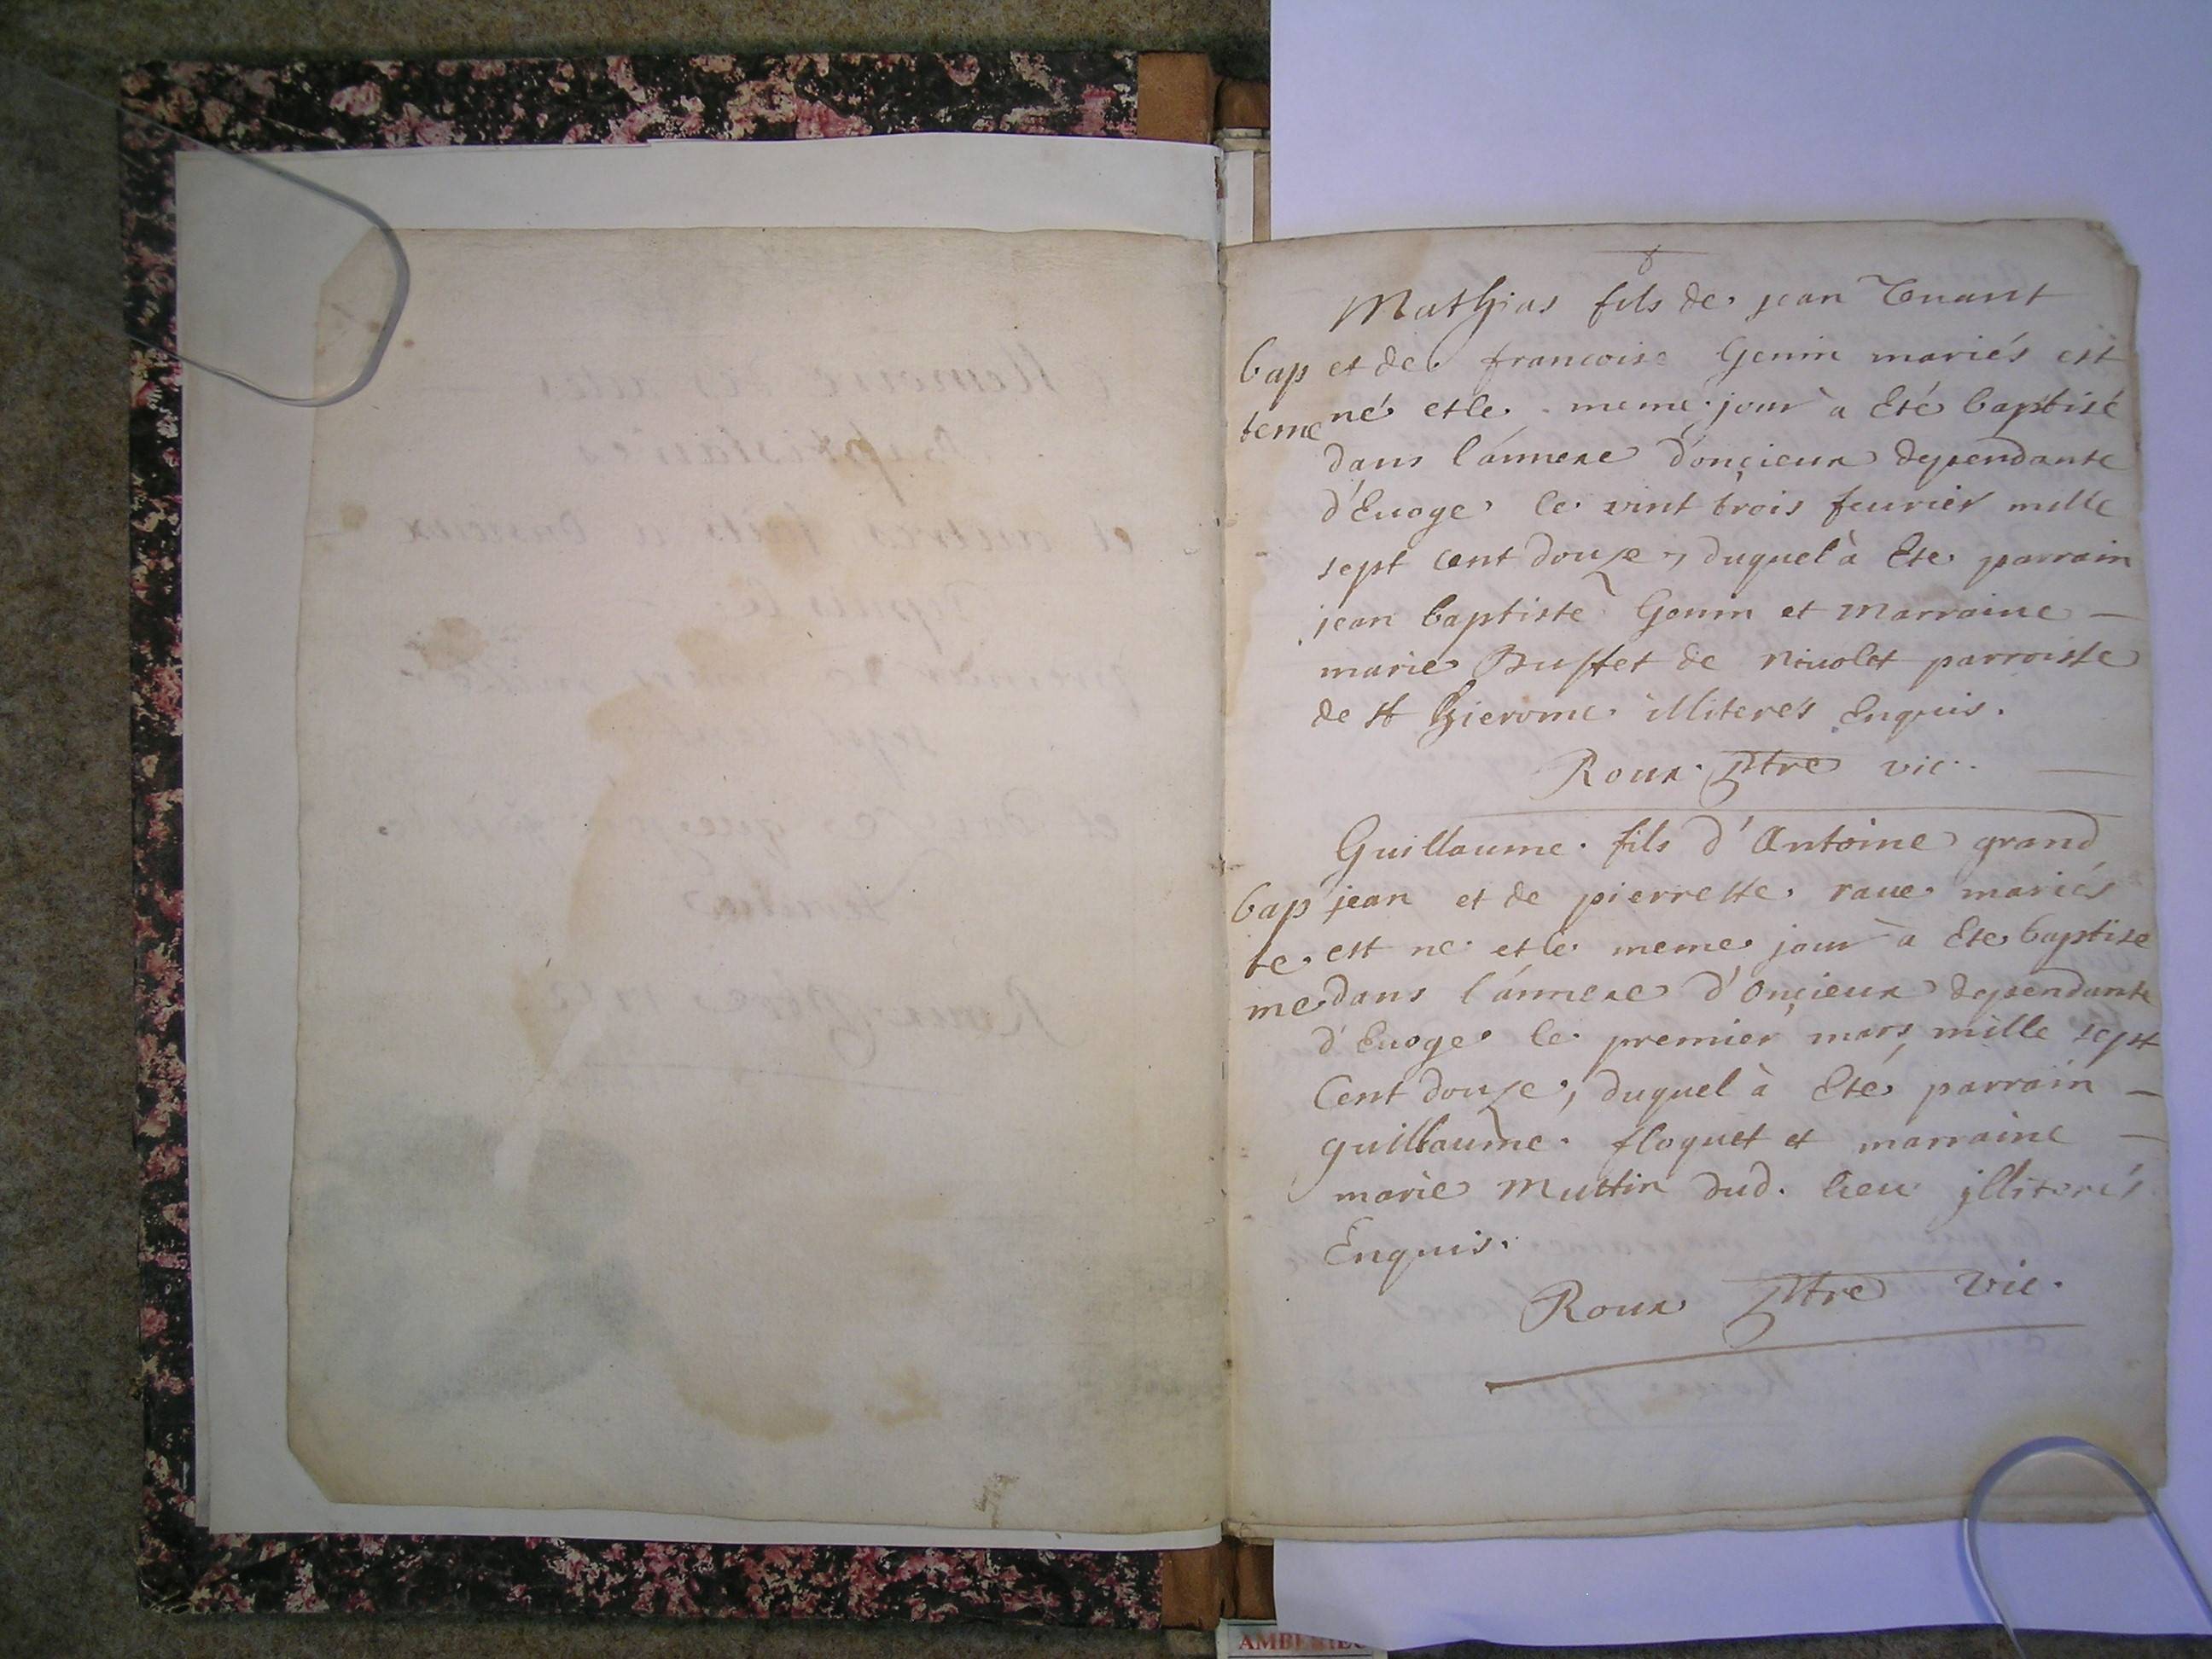 Mathias fils de jean Tenant
bap et de francoise Genin mariés est
teme né et le meme jour à Eté baptisé
dans l'annexe d'oncieux dependante
d'Euoge le vint trois feurier mille
sept cent douze, duquel à Eté parrain
jean baptiste Genin et Marraine
marie Buffet de niuolet parroisse
de st hierome illiterés Enquis.
Roux ptre vic.
Guillaume fils d'Antoine grand
bap jean et de pierrette raue mariés
te est né et le meme jour à Eté baptise
me dans l'annexe d'Oncieux dependante
d'Euoge le premier mars mille sept
Cent douze, duquel à Eté parrain
guillaume floquet et marraine
marie Muttin dud. lieu illiterés
Enquis.
Roux ptre vic.